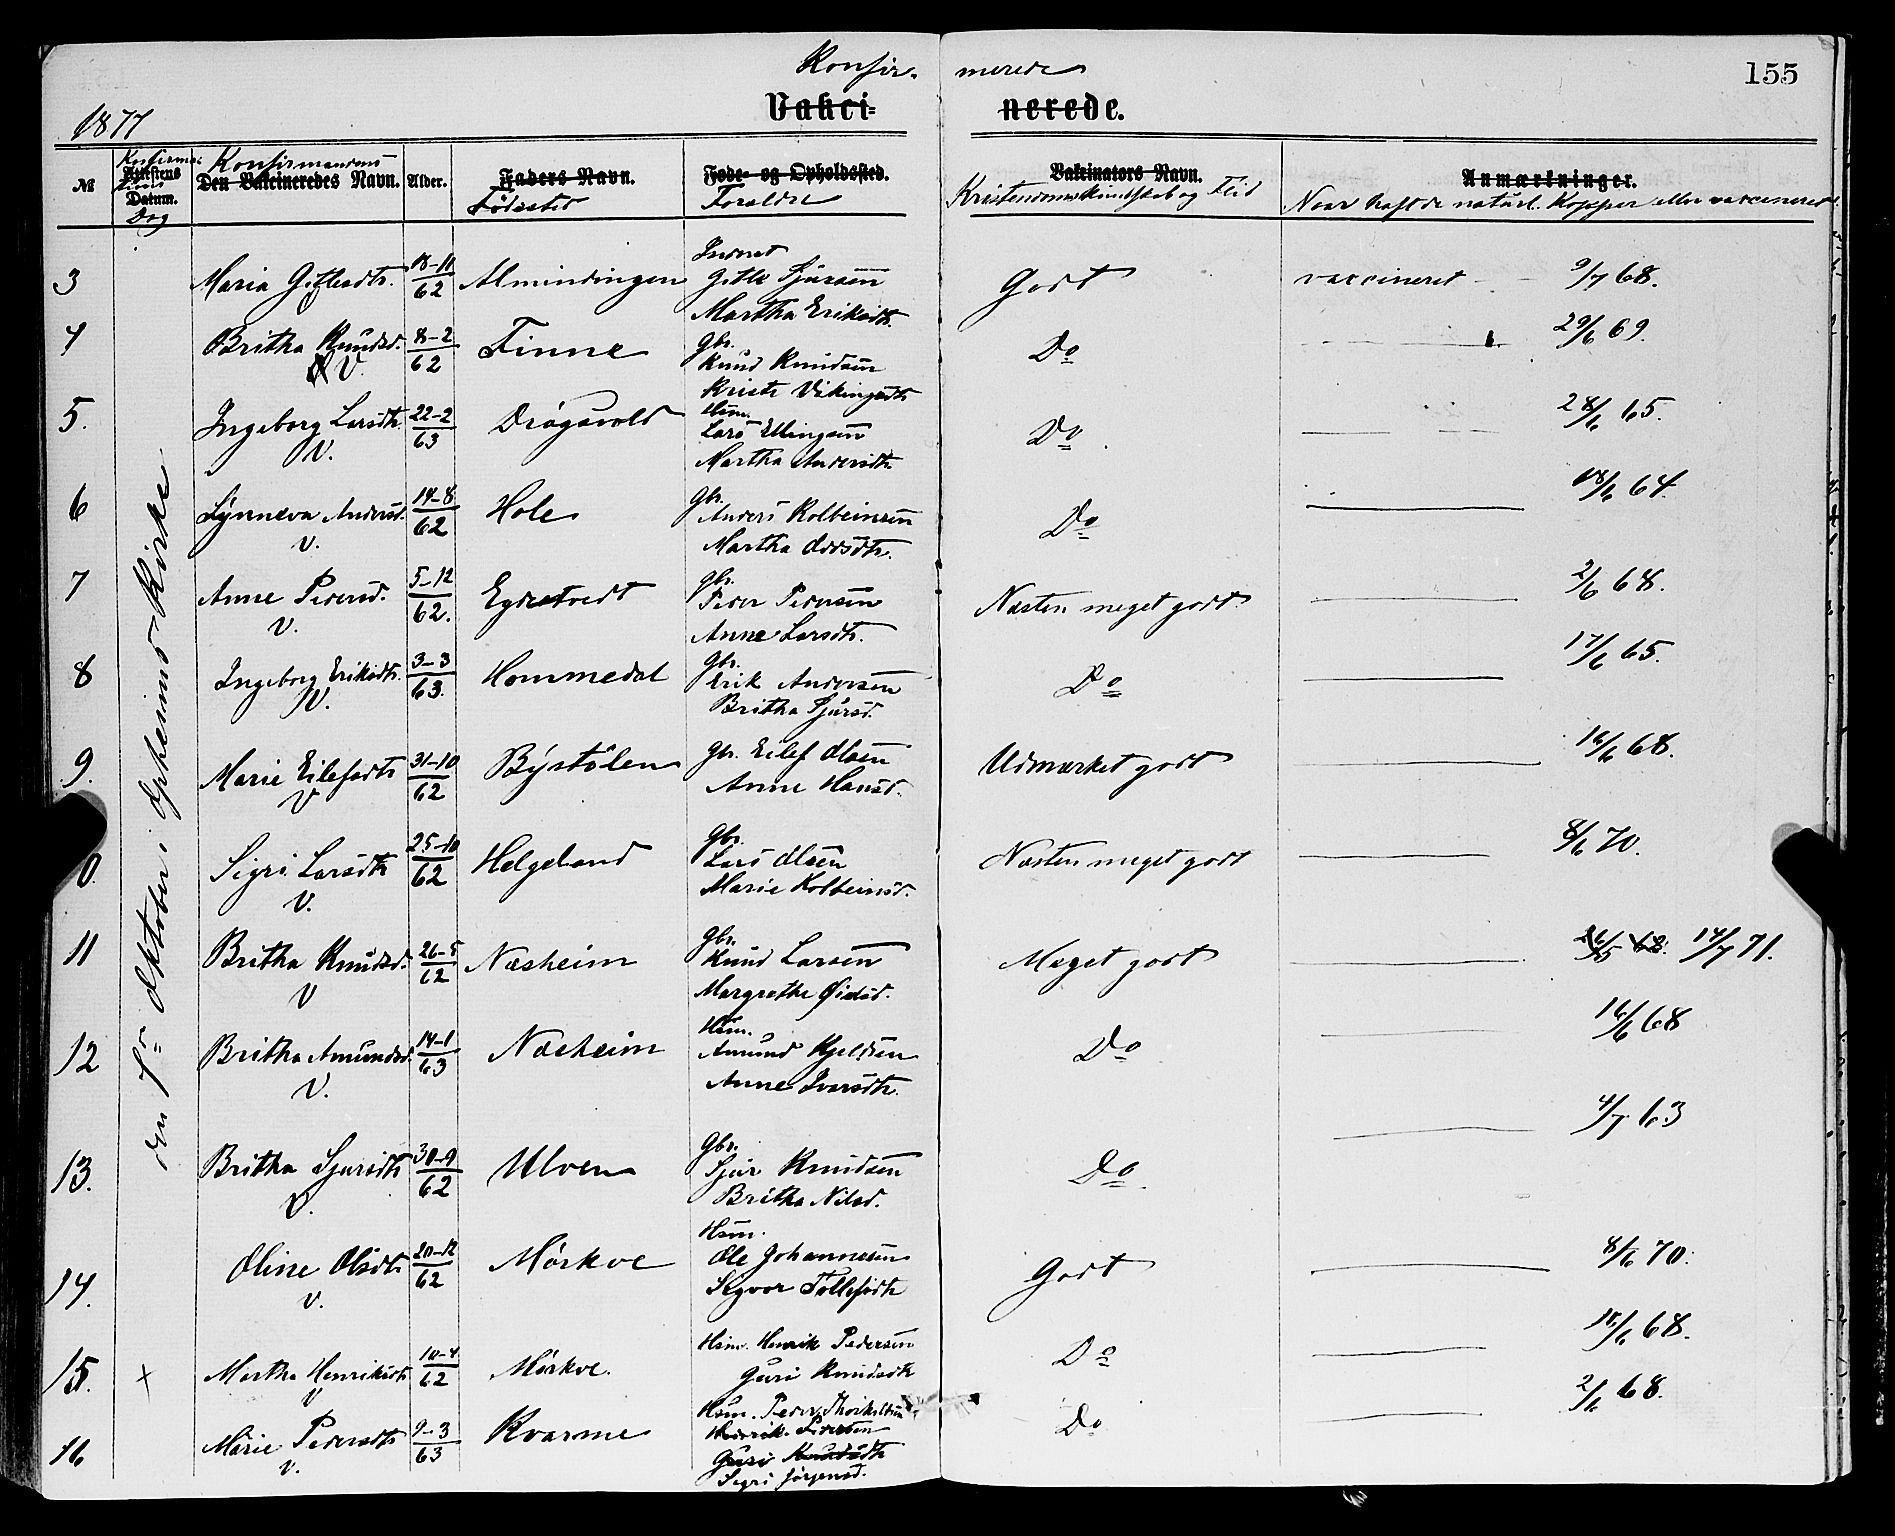 Konfir- merede
155
1877 Vakci- nerede.
Konfirmandens
№ Attestens Datum. Dag Den Vakcineredes Navn. Alder. Faders Navn. Føde- og Opholdssted. Vakcinators Navn. Anmærkninger.
Fødested Forældre Kristendomskundskab og Flid Naar havt de naturl. Kopper eller vaccineret
den 7de Oktober i Opheims Kirke
Inderst
3 Maria Gitlesdtr. 18-11/62 Almindingen Gitle Sjursen Godt vaccineret 9/7 68.
Martha Eriksdtr.
4 Britha Knudsd. 8-2/62 Finne Gbr. Do 29/6 69.
V. Knud Knudsen
Kristi Vikingsdtr
5. Ingeborg Larsdtr. 22-2/63 Drøgsvold Hsm. Do 28/6 65.
V. Lars Ellingsen
Martha Andersdtr
6 Synneva Andersd. 14-8/62 Hole Gbr. Do 18/6 64.
V. Anders Kolbeinsen
Martha Larsdtr.
7 Anne Pedersd. 5-12/62. Egdetvedt Gbr. Næsten meget godt 2/6 68.
V. Peder Pedersen
Anne Larsdtr.
8 Ingeborg Eriksdtr. 3-3/63. Hommedal Gbr. Do 17/6 65.
V. Erik Andersen
Britha Sjursd.
9. Marie Eilefsdtr 31-10/62 Bystølen Gbr. Eilef Olsen Udmærket godt 16/6 68.
V Anne Hansd.
0. Sigri Larsdtr 25-10/62 Helgeland Gbr. Næsten meget godt 8/6 70.
V. Lars Olsen
Marie Kolbeinsd.
11 Britha Knudsd. 26-5/62 Næsheim Gbr. Meget godt 26/5 68. 14/7 71.
V Knud Larsen
Margrethe
12 Britha Amundsd. 14-1/63 Næsheim Hsm. Do 16/6 68
V. Amund Kjeldsen
Anne Ivarsdtr.
13. Britha Sjursdtr 30-9/62 Ulven Gbr. Do 4/7 63
V. Sjur Knudsen
Britha Nilsd.
14. Oline Olsdtr 20-12/62 Mørkve Hsm. Godt 8/6 70.
V. Ole Johannesen
Sygvor Tollefsdtr
15. × Martha Henriksdtr 10-4/62 Mørkve. Hsm. Henrik Pedersen Do 18/6 68.
V Guri Knudsdtr
16 Marie Pedersdtr 9-3/63 Kvarme Hsm. Peder Thorkildsen Do 2/6 68.
V. Henrik Pedersen
Guri Knudsdtr
Sigri Jørgensd.